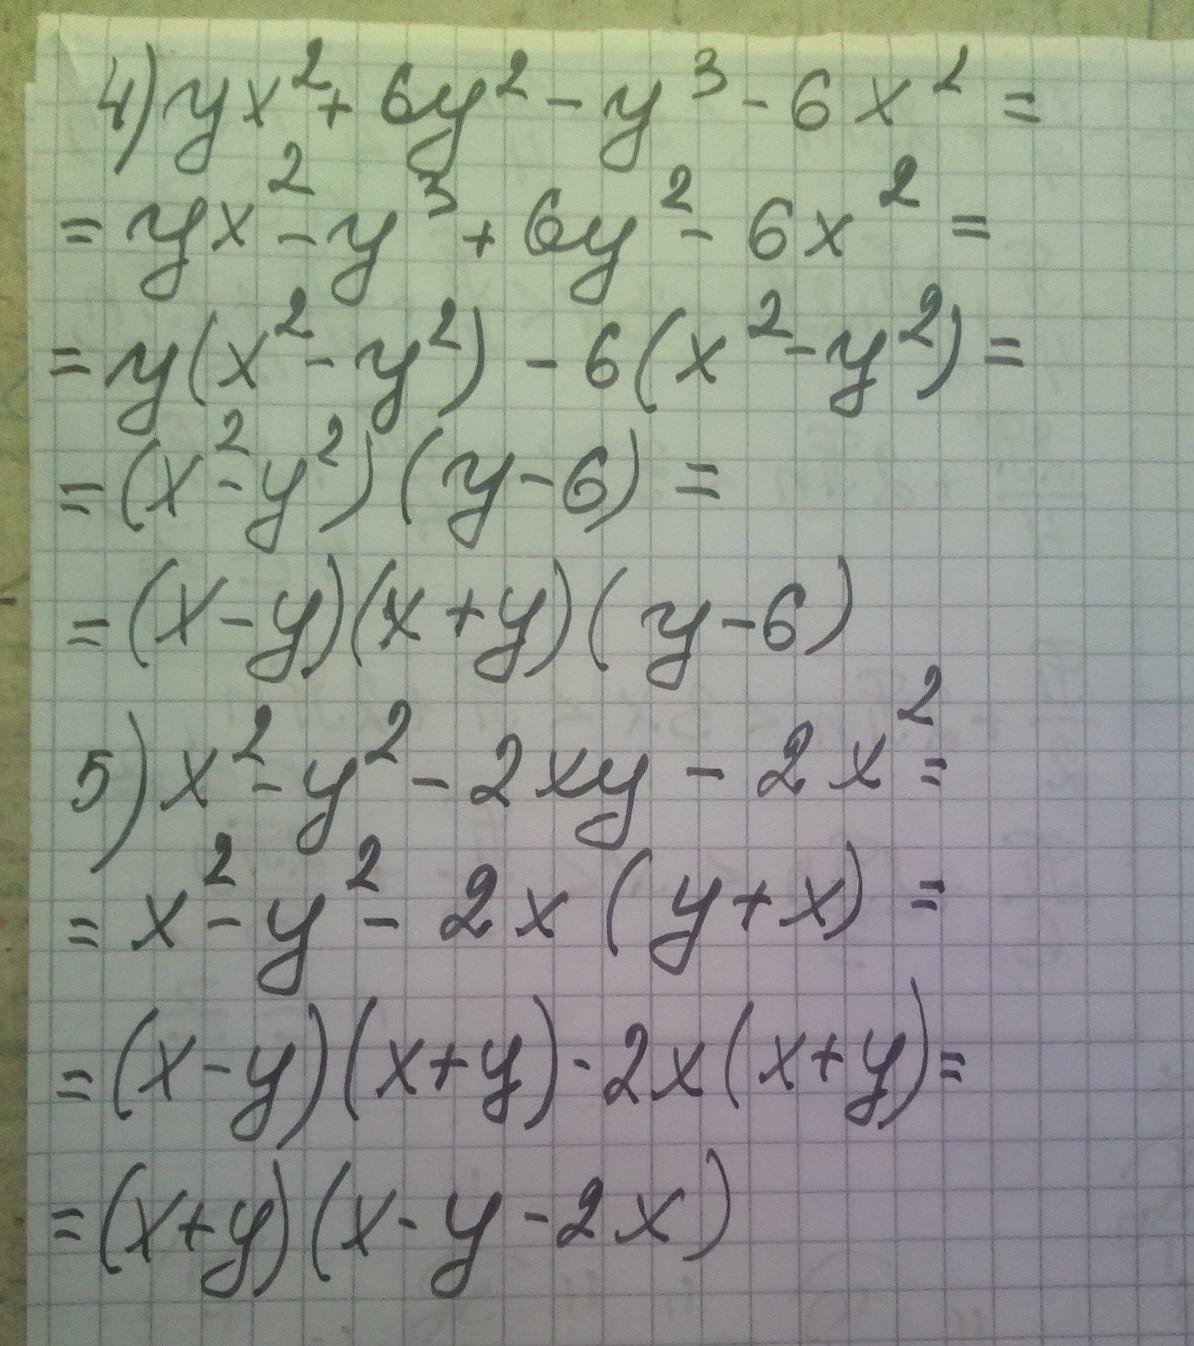 4) yx² + 6y² - y³ - 6x² =
= yx² - y³ + 6y² - 6x² =
= y(x² - y²) - 6(x² - y²) =
= (x² - y²)(y - 6) =
= (x - y)(x + y)(y - 6)
5) x² - y² - 2xy - 2x² =
= x² - y² - 2x(y + x) =
= (x - y)(x + y) - 2x(x + y) =
= (x + y)(x - y - 2x)